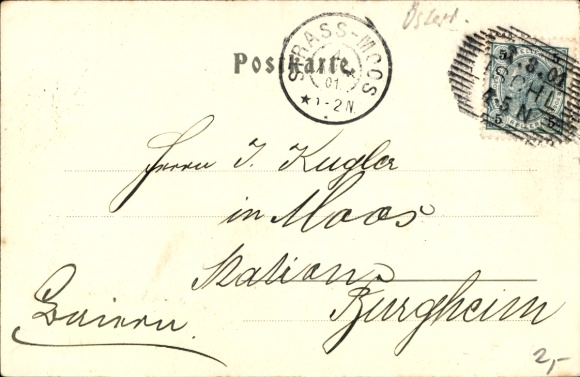 Österr.
Postkarte.
STRASS-MOOS
01.
★1-2N.
5 5
8.01
4-5N
5 5
Herrn J. Kugler
in Moos
Station
Burgheim
Baiern.
2,-